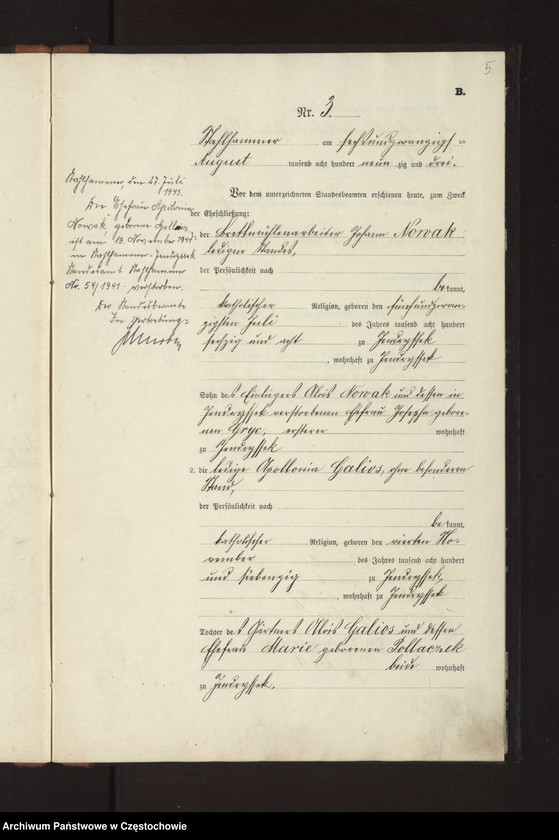 5
B.
Nr. 3.
Stahlhammer am sechsundzwanzigsten
August tausend acht hundert neunzig und drei.
Vor dem unterzeichneten Standesbeamten erschienen heute, zum Zweck
der Eheschließung:
der Brettmühlenarbeiter Johann Nowak
ledigen Standes,
der Persönlichkeit nach
bekannt,
katholischer Religion, geboren den fünfundzwan-
zigsten Juli des Jahres tausend acht hundert
sechzig und acht zu Jendryssek
, wohnhaft zu Jendryssek
Sohn des Einliegers Alois Nowak und dessen in
Jendryssek verstorbenen Ehefrau Josepha gebore-
nen Gryc, ersterer wohnhaft
zu Jendryssek
2. die ledige Apollonia Galios, ohne besonderen
Stand,
der Persönlichkeit nach
bekannt,
katholischer Religion, geboren den vierten No-
vember des Jahres tausend acht hundert
und siebenzig zu Jendryssek,
, wohnhaft zu Jendryssek
Tochter des Gärtners Alois Galios und dessen
Ehefrau Marie geborenen Pollaczek
beide wohnhaft
zu Jendryssek.
Stahlhammer, den 27. Juli
1943.
Die Ehefrau Apolonia
Nowak, geborene
ist am 19. November 1941
in Stahlhammer-Jendryssek
Standesamt Stahlhammer
Nr. 54/1941 verstorben.
Der Standesbeamte
In Vertretung:
Archiwum Państwowe w Częstochowie